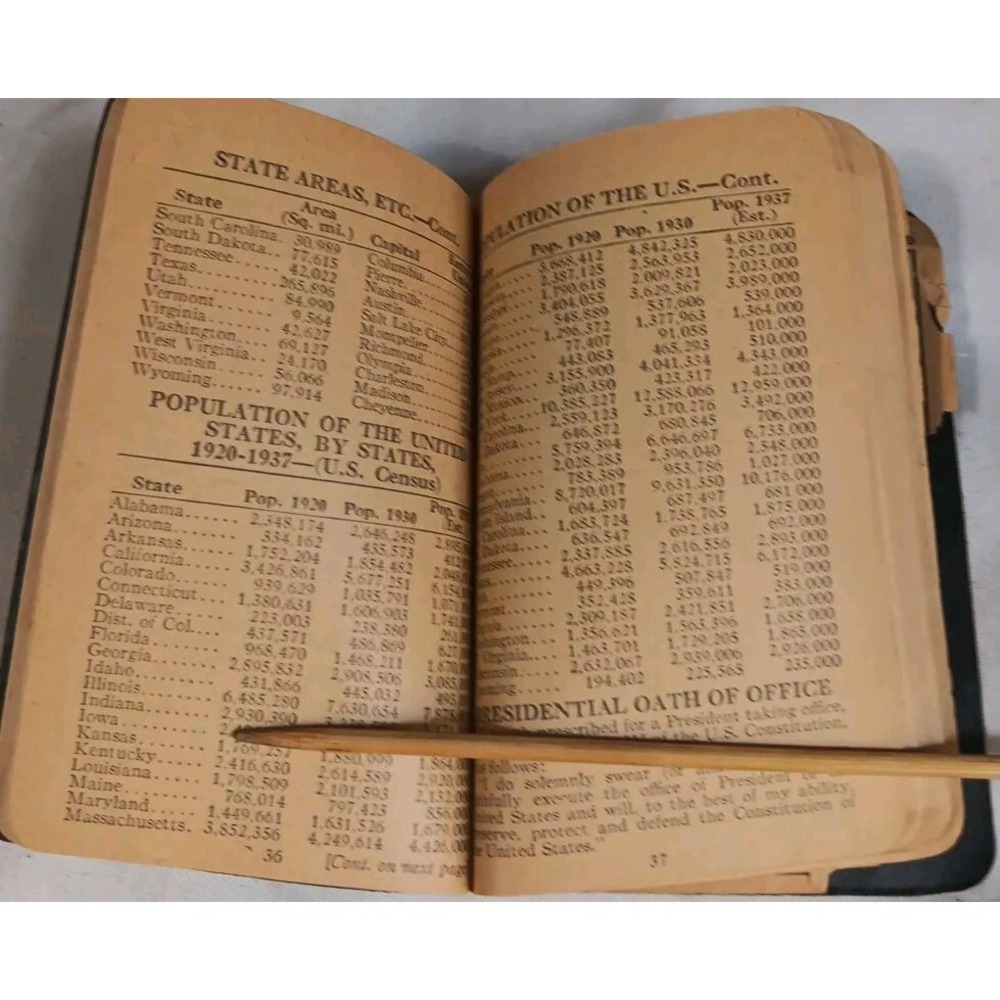 STATE AREAS, ETC.—Cont.
State Area (Sq. mi.) Capital
South Carolina.. 30,989 Columbia......
South Dakota.. 77,615 Pierre......
Tennessee...... 42,022 Nashville......
Texas.......... 265,896 Austin......
Utah.......... 84,990 Salt Lake City..
Vermont....... 9,564 Montpelier....
Virginia....... 42,627 Richmond.....
Washington.... 69,127 Olympia......
West Virginia.. 24,170 Charleston....
Wisconsin...... 56,066 Madison......
Wyoming...... 97,914 Cheyenne.....
POPULATION OF THE UNITED
STATES, BY STATES,
1920-1937—(U.S. Census)
State Pop. 1920 Pop. 1930 Pop.
Alabama...... 2,348,174 2,646,248
Arizona....... 334,162 435,573
Arkansas...... 1,752,204 1,854,482
California...... 3,426,861 5,677,251
Colorado...... 939,629 1,035,791
Connecticut.... 1,380,631 1,606,903
Delaware...... 223,003 238,380
Dist. of Col.... 437,571 486,869
Florida........ 968,470 1,468,211
Georgia....... 2,895,832 2,908,506
Idaho......... 431,866 445,032
Illinois........ 6,485,280 7,630,654
Indiana....... 2,930,390
Iowa.........
Kansas....... 1,769,257 1,880,999 1,864,0
Kentucky...... 2,416,630 2,614,589 2,920,0
Louisiana...... 1,798,509 2,101,593 2,132,0
Maine........ 768,014 797,423 856,0
Maryland...... 1,449,661 1,631,526 1,679,0
Massachusetts. 3,852,356 4,249,614 4,426,0
36 [Cont. on next page
PULATION OF THE U.S.—Cont.
Pop. 1920 Pop. 1930 Pop. 1937 (Est.)
3,668,412 4,842,325 4,830,000
2,387,125 2,563,953 2,652,000
1,790,618 2,009,821 2,023,000
3,404,055 3,629,367 3,989,000
548,889 537,606 539,000
1,296,372 1,377,963 1,364,000
77,407 91,058 101,000
443,083 465,293 510,000
3,155,900 4,041,334 4,343,000
360,350 423,317 422,000
10,385,227 12,588,066 12,959,000
Carolina.. 2,559,123 3,170,276 3,492,000
akota... 646,872 680,845 706,000
5,759,394 6,646,697 6,733,000
2,028,283 2,396,040 2,548,000
783,389 953,786 1,027,000
sylvania.. 8,720,017 9,631,350 10,176,000
Island.. 604,397 687,497 681,000
Carolina.. 1,683,724 1,738,765 1,875,000
Dakota... 636,547 692,849 692,000
essee.... 2,337,885 2,616,556 2,893,000
4,663,228 5,824,715 6,172,000
449,396 507,847 519,000
mont..... 352,428 359,611 383,000
2,309,187 2,421,851 2,706,000
ington... 1,356,621 1,563,396 1,658,000
Virginia... 1,463,701 1,729,205 1,865,000
onsin.... 2,632,067 2,939,006 2,926,000
ming..... 194,402 225,565 235,000
RESIDENTIAL OATH OF OFFICE
prescribed for a President taking office,
of the U.S. Constitution,
s follows:
"I do solemnly swear (or
hfully execute the office of President of
ited States and will, to the best of my ability,
serve, protect and defend the Constitution of
e United States."
37